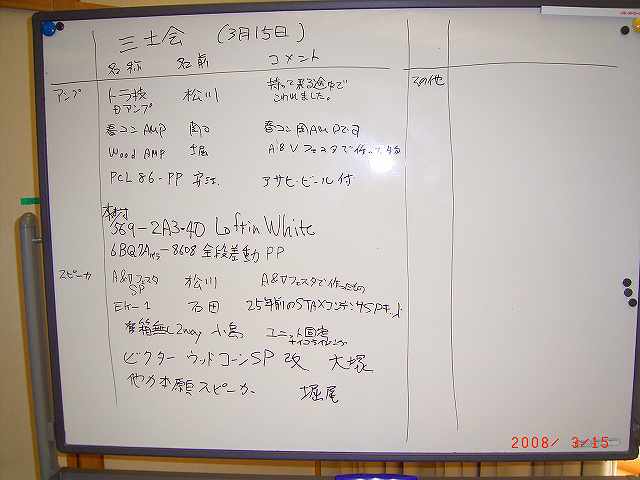 三土会 (3月15日)
名称 名前 コメント
アンプ トラ技 松川 持って来る途中で
Dアンプ こわれました。
その他
春コンAMP 春コン用AMPです
Wood AMP 堀 A&Vフェスタで作った
PCL86-PP アサヒ・ビール付
569-2A3-40 Loftin White
6BQ7A 8608 全段差動PP
スピーカ A&Vフェスタ 松川 A&Vフェスタで作ったもの
SP
石田 25年前のSTAXコンデンサSPキット
箱無し2way 小島 ユニット
ビクター ウッドコーンSP 改 大塚
他力本願スピーカー 堀尾
2008/ 3/15